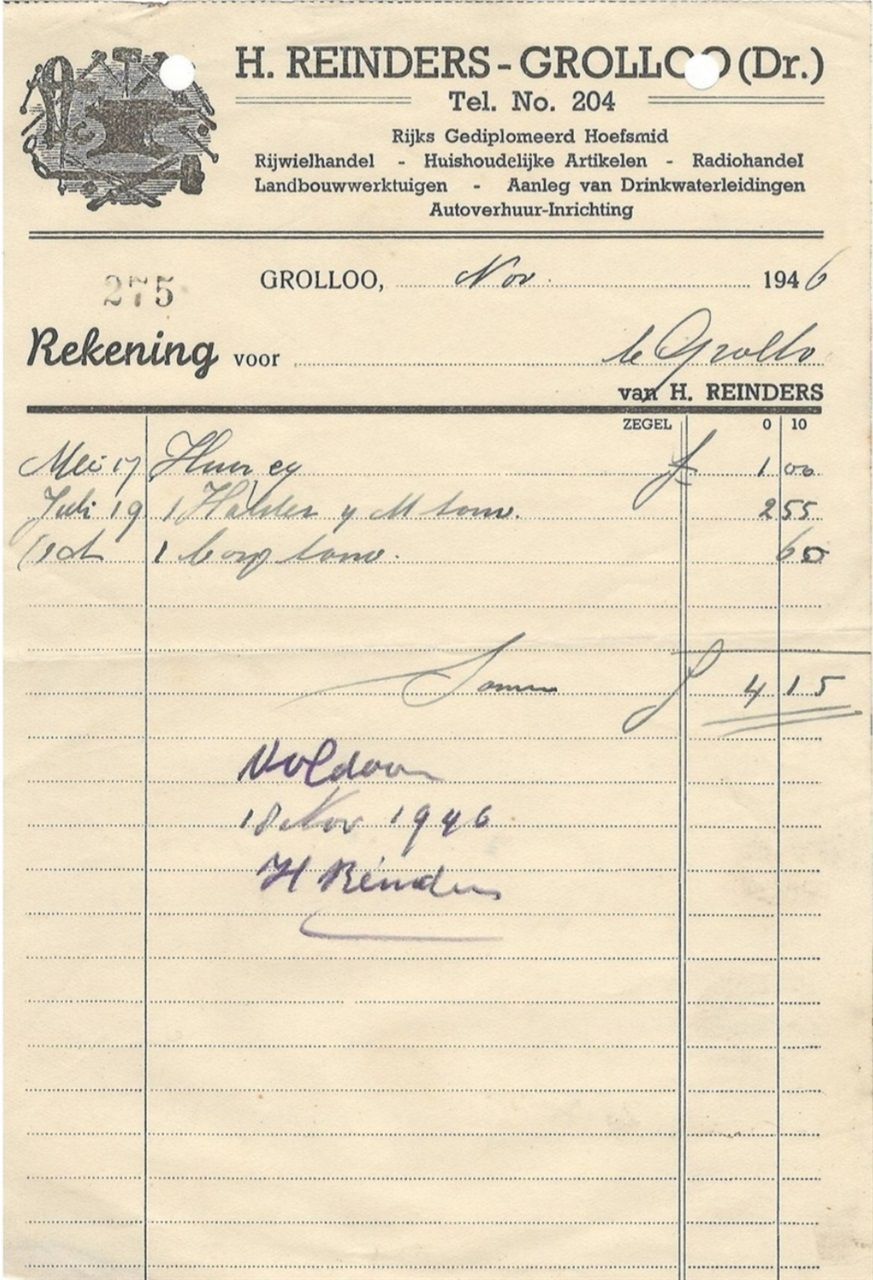 H. REINDERS - GROLLOO (Dr.)
Tel. No. 204
Rijks Gediplomeerd Hoefsmid
Rijwielhandel - Huishoudelijke Artikelen - Radiohandel
Landbouwwerktuigen - Aanleg van Drinkwaterleidingen
Autoverhuur-Inrichting
275
GROLLOO, Nov. 1946
Rekening voor te Grollo
van H. REINDERS
ZEGEL 0 10
Mei 17 Huur f 1 00
Juli 19 1 Halster 2 55
Oct 1 touw. 60
Samen f 4 15
Voldaan
18 Nov 1946
H Reinders